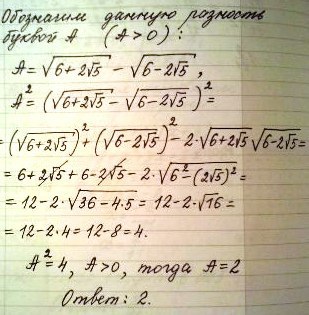 Обозначим данную разность
буквой A (A > 0) :
A = √(6+2√5) − √(6−2√5) ,
A² = (√(6+2√5) − √(6−2√5))² =
= (√(6+2√5))² + (√(6−2√5))² − 2·√(6+2√5) √(6−2√5) =
= 6 + 2√5 + 6 − 2√5 − 2·√(6² − (2√5)²) =
= 12 − 2·√(36 − 4·5) = 12 − 2·√16 =
= 12 − 2·4 = 12 − 8 = 4.
A² = 4, A > 0, тогда A = 2
Ответ: 2.